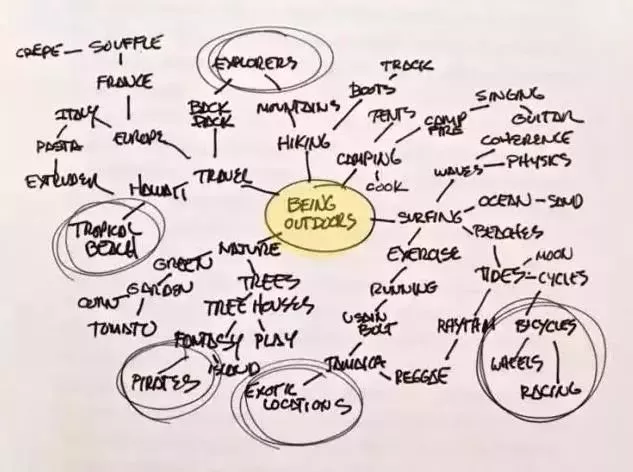 EXPLORERS
CREPE — SOUFFLE
FRANCE
TRACK
BOOTS
SINGING
GUITAR
BACK
PACK
MOUNTAINS
TENTS
CAMP
FIRE
ITALY
EUROPE
PASTA
HIKING
CAMPING
COOK
COHERENCE
WAVES
PHYSICS
EXTRUDER
HAWAII
TRAVEL
BEING
OUTDOORS
SURFING
OCEAN – SAND
BEACHES
TROPICAL
BEACH
NATURE
EXERCISE
MOON
TIDES – CYCLES
GREEN
GARDEN
TOMATO
TREES
TREE HOUSES
RUNNING
USAIN
BOLT
RHYTHM
BICYCLES
FANTASY
PLAY
ISLAND
PIRATES
JAMAICA
REGGAE
WHEELS
RACING
EXOTIC
LOCATIONS